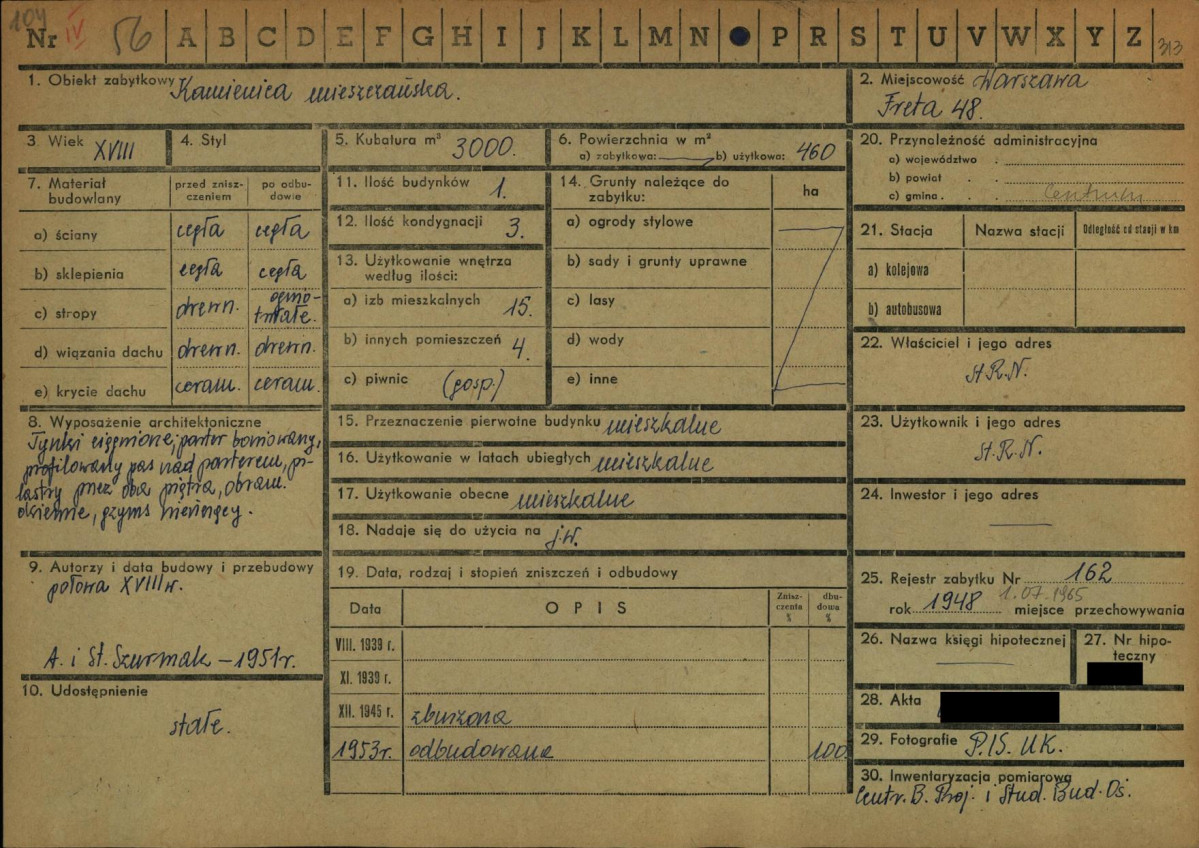 104
Nr IV 56 A B C D E F G H I J K L M N P R S T U V W X Y Z 313
1. Obiekt zabytkowy Kamienica mieszczańska.
2. Miejscowość Warszawa
Freta 48.
3. Wiek XVIII
4. Styl
5. Kubatura m³ 3000.
6. Powierzchnia w m²
a) zabytkowa: b) użytkowa: 460
7. Materiał budowlany
przed zniszczeniem
po odbudowie
a) ściany cegła cegła
b) sklepienia cegła cegła
c) stropy drewn. ognio-
trwałe.
d) wiązania dachu drewn. drewn.
e) krycie dachu ceram. ceram.
8. Wyposażenie architektoniczne
Tynki ciągnione, parter boniowany,
profilowany pas nad parterem, pi-
lastry przez oba piętra, obram.
okienne, gzyms wieńczący.
9. Autorzy i data budowy i przebudowy
połowa XVIII w.
A. i St. Szurmak – 1951r.
10. Udostępnienie
stałe.
11. Ilość budynków 1.
12. Ilość kondygnacji 3.
13. Użytkowanie wnętrza
według ilości:
a) izb mieszkalnych 15.
b) innych pomieszczeń 4.
c) piwnic (gosp.)
14. Grunty należące do
zabytku:
ha
a) ogrody stylowe
b) sady i grunty uprawne
c) lasy
d) wody
e) inne
15. Przeznaczenie pierwotne budynku mieszkalne
16. Użytkowanie w latach ubiegłych mieszkalne
17. Użytkowanie obecne mieszkalne
18. Nadaje się do użycia na j.w.
19. Data, rodzaj i stopień zniszczeń i odbudowy
Data OPIS
Znisz-
czenia
%
dbu-
dowa
%
VIII. 1939 r.
XI. 1939 r.
XII. 1945 r. zburzona
1953r. odbudowana 100.
20. Przynależność administracyjna
a) województwo .
b) powiat . .
c) gmina . . . Centrum
21. Stacja Nazwa stacji Odległość od stacji w km
a) kolejowa
b) autobusowa
22. Właściciel i jego adres
St.R.N.
23. Użytkownik i jego adres
St.R.N.
24. Inwestor i jego adres
25. Rejestr zabytku Nr 162
1.07.1965
rok 1948 miejsce przechowywania
26. Nazwa księgi hipotecznej
27. Nr hipo-
teczny
28. Akta
29. Fotografie P.I.S. U.K.
30. Inwentaryzacja pomiarowa
Centr. B. Proj. i Stud. Bud. Oś.